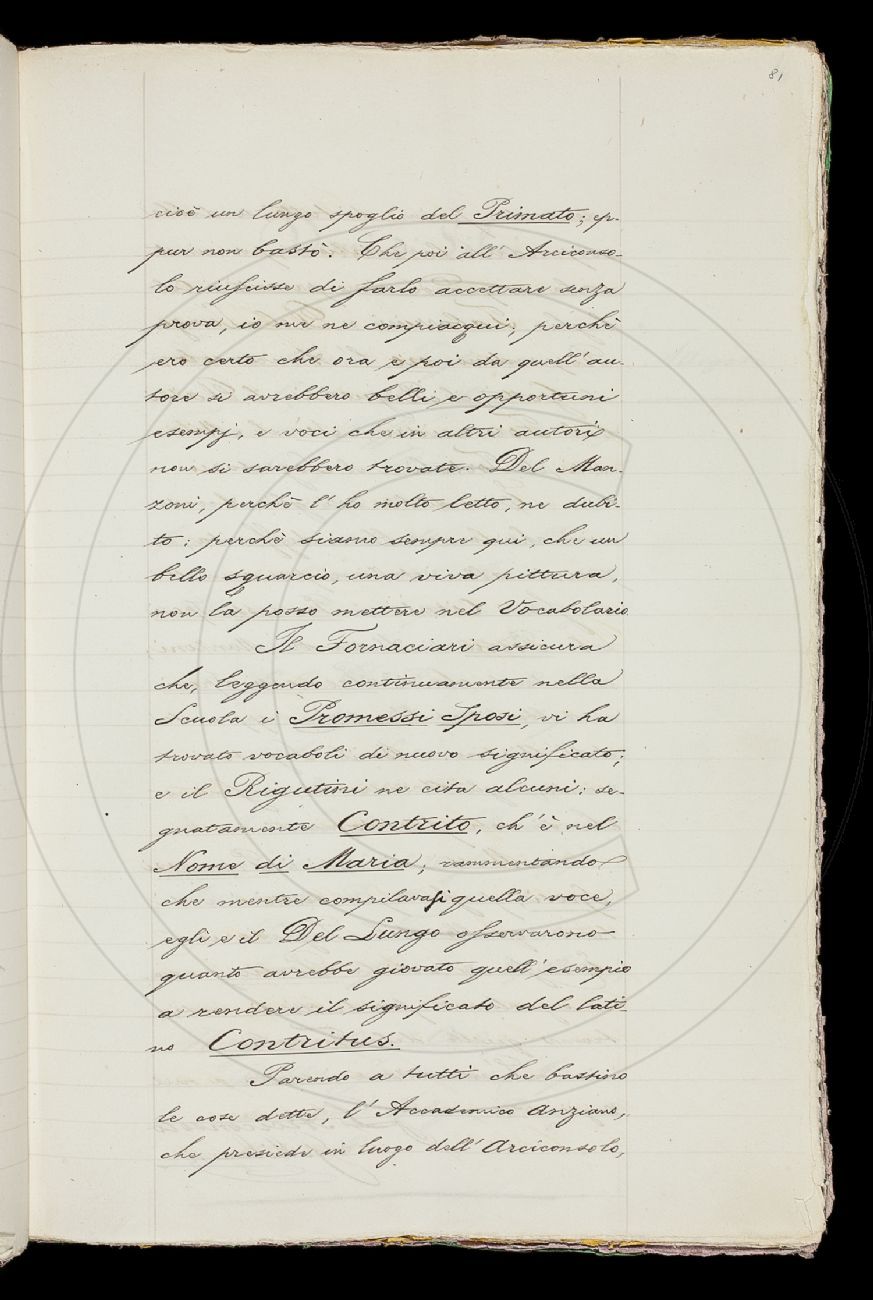 81
cioè un lungo spoglio del Primato; ep-
pur non bastò. Che poi all' Arciconso-
lo riuscisse di farlo accettare senza
prova, io me ne compiacqui; perchè
ero certo che ora e poi da quell' au-
tore si avrebbero belli e opportuni
esempj, e voci che in altri autori
non si sarebbero trovate. Del Man-
zoni, perchè l' ho molto letto, ne dubi-
to: perchè siamo sempre qui, che un
bello squarcio, una viva pittura,
non la posso mettere nel Vocabolario
Il Fornaciari assicura
che, leggendo continuamente nella
Scuola i Promessi Sposi, vi ha
trovato vocaboli di nuovo significato;
e il Rigutini ne cita alcuni: se-
gnatamente Contrito, ch' è nel
Nome di Maria; rammentando
che mentre compilavasi quella voce,
egli e il Del Lungo osservarono
quanto avrebbe giovato quell' esempio
a rendere il significato del lati-
no Contritus.
Parendo a tutti che bastino
le cose dette, l' Accademico Anziano,
che presiede in luogo dell' Arciconsolo,